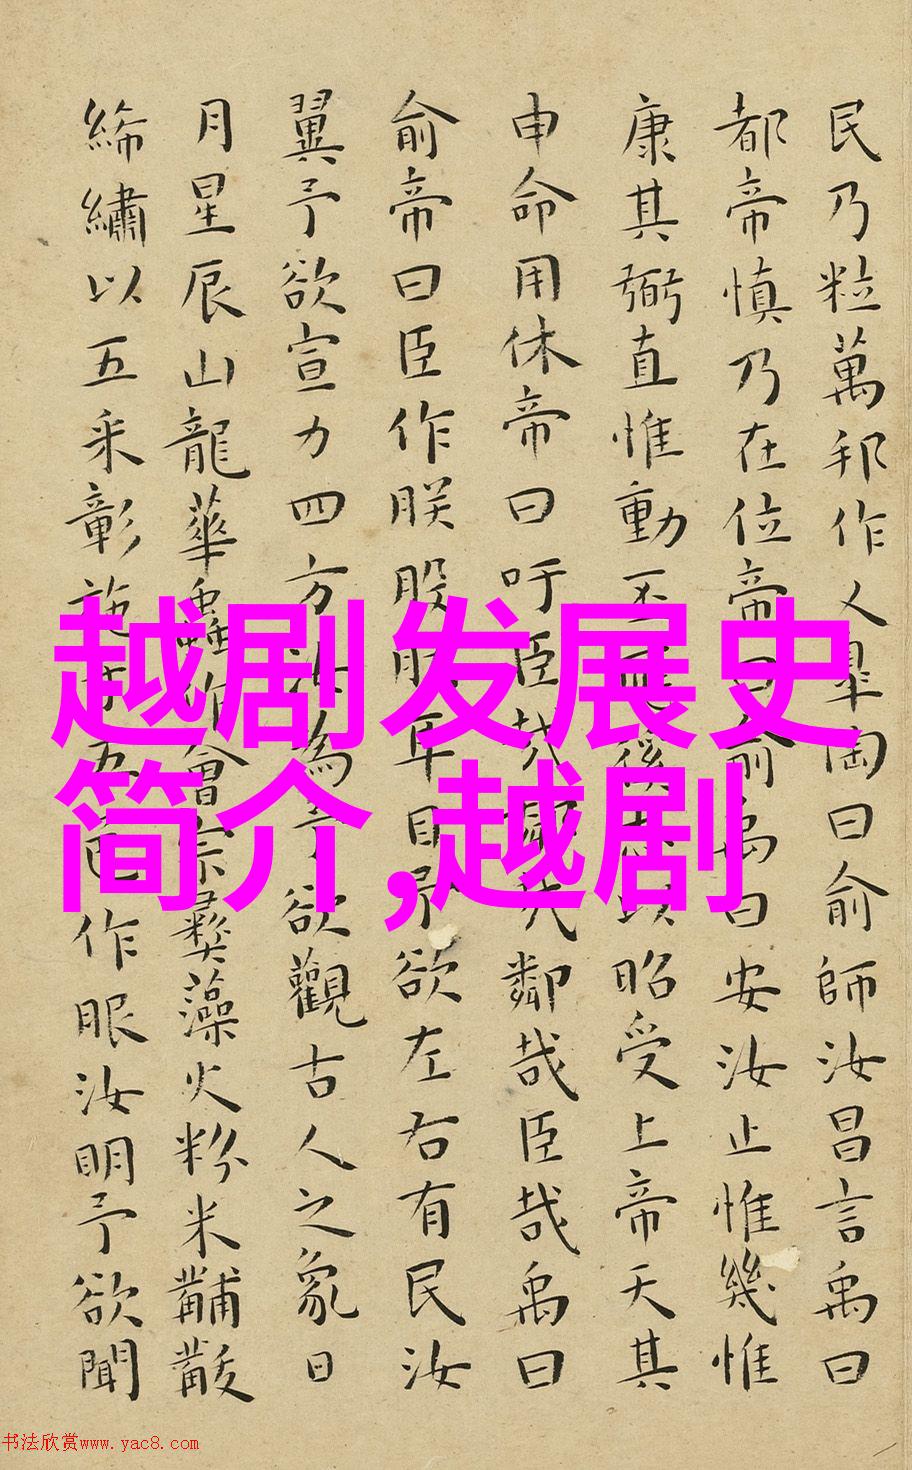 民乃粒萬邦作乂皐陶曰俞師汝昌言禹曰
都帝慎乃在位帝曰俞禹曰安汝止惟幾惟
康其弼直惟動丕徯以昭受上帝天其
申命用休帝曰吁臣哉鄰哉鄰哉臣哉禹曰
俞帝曰臣作朕股肱耳目予欲左右有民汝
翼予欲宣力四方汝為予欲觀古人之象日
月星辰山龍華蟲作會宗彝藻火粉米黼黻
絺繡以五采彰施于五色作服汝明予欲聞
越剧发展史
简介,越剧
书法欣赏www.yac8.com